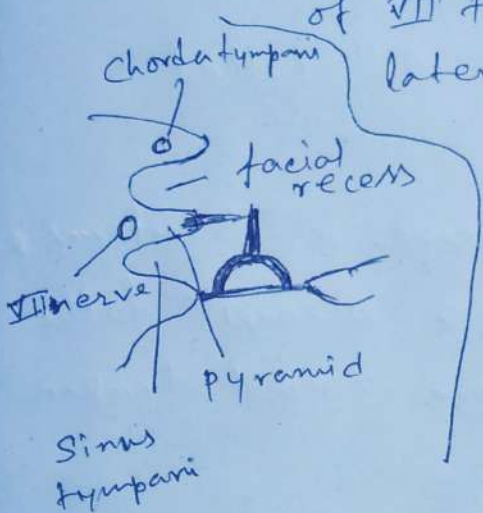 of VII
later
Chorda tympani
facial
recess
VII nerve
pyramid
Sinus
tympani